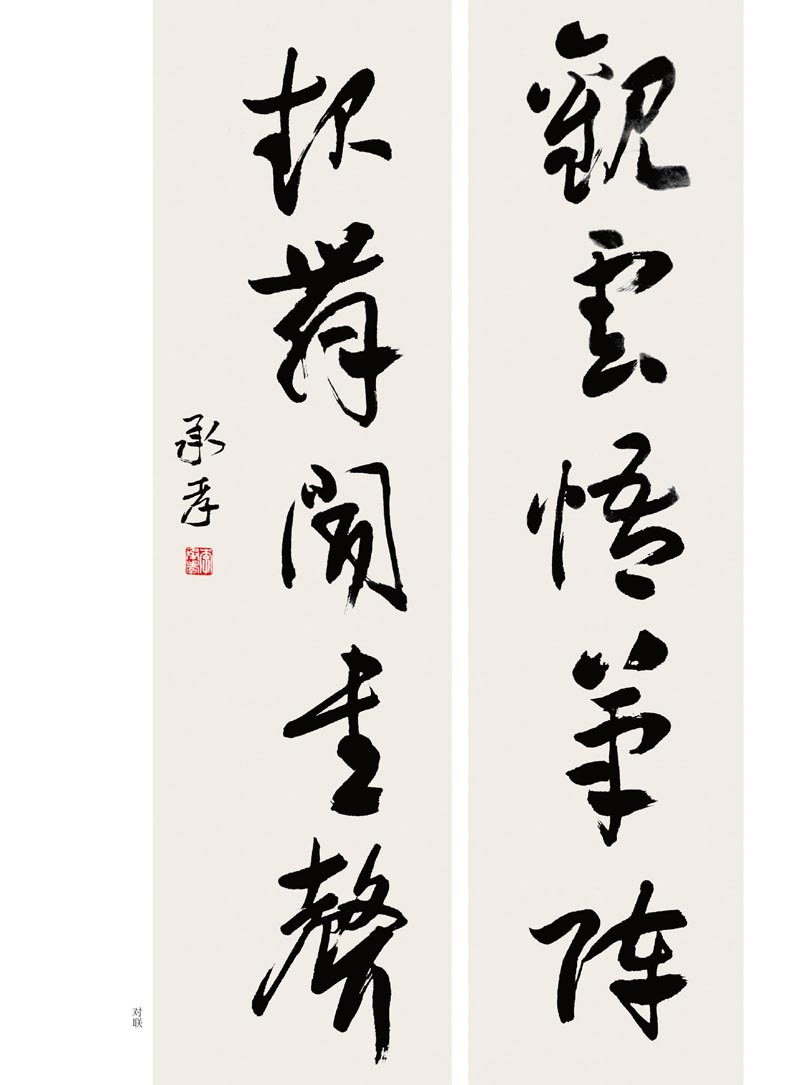 觀雲悟筆陣
起舞聞書聲
承孝
对联